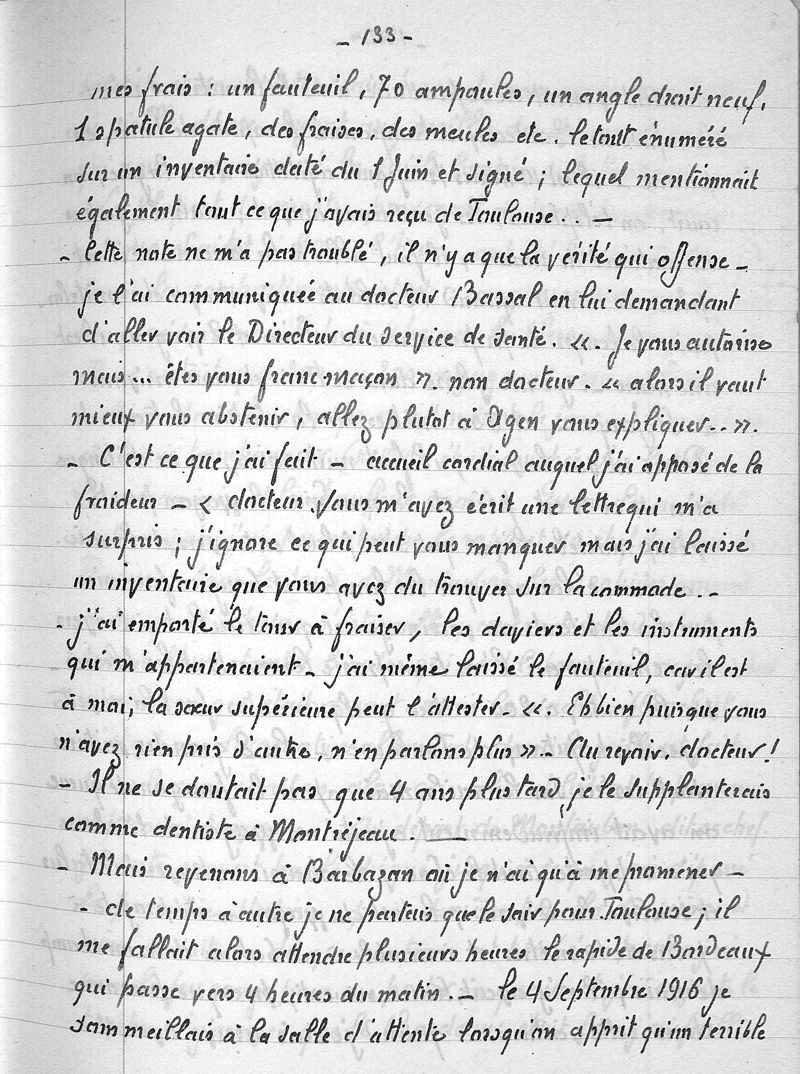 - 133 -
mes frais : un fauteuil, 70 ampoules, un angle droit neuf,
1 spatule agate, des fraises, des meules etc. le tout énuméré
sur un inventaire daté du 1 Juin et signé ; lequel mentionnait
également tout ce que j'avais reçu de Toulouse.. —
- Cette note ne m'a pas troublé, il n'y a que la vérité qui offense -
je l'ai communiqueé au docteur Bassal en lui demandant
d'aller voir le Directeur du service de santé. «. Je vous autorise
mais... êtes vous franc-maçon ». non docteur. « alors il vaut
mieux vous abstenir, allez plutot à Agen vous expliquer.. ».
- C'est ce que j'ai fait - accueil cordial auquel j'ai apposé de la
froideur - « docteur vous m'avez écrit une lettre qui m'a
surpris ; j'ignore ce qui peut vous manquer mais j'ai laissé
un inventaire que vous avez du trouver sur la commode. -
- j'ai emporté le tour à fraiser, les daviers et les instruments
qui m'appartenaient - j'ai même laissé le fauteuil, car il est
à moi; la sœur supérieure peut l'attester - «. Eh bien puisque vous
n'avez rien pris d'autre, n'en parlons plus » - Au revoir, docteur!
- Il ne se doutait pas que 4 ans plus tard, je le supplanterais
comme dentiste à Montréjeau. —
- Mais revenons à Barbazan où je n'ai qu'à me promener -
- de temps à autre je ne partais que le soir pour Toulouse; il
me fallait alors attendre plusieurs heures le rapide de Bordeaux
qui passe vers 4 heures du matin. - le 4 Septembre 1916 je
sommeillais à la salle d'attente lorsqu'on apprit qu'un terrible